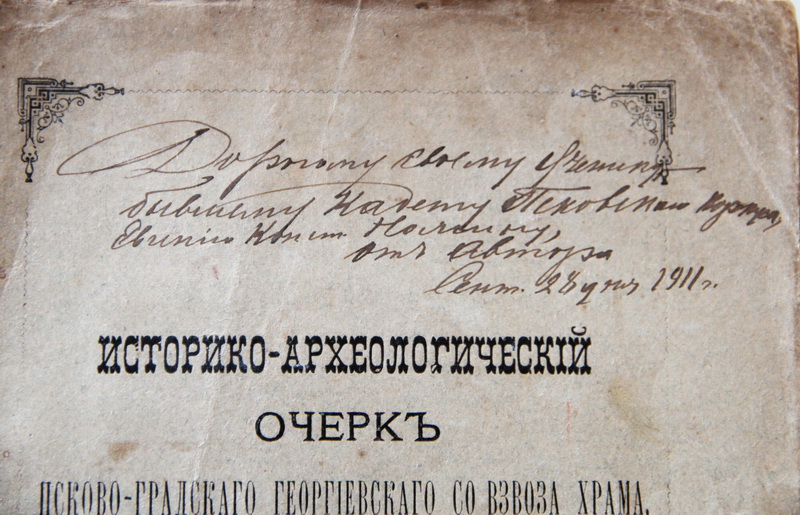 Дорогому своему Ученику
бывшему Кадету Псковскаго корпуса,
Евгенію Конст.
отъ автора
Сент. 28 дня 1911 г.
ИСТОРИКО-АРХЕОЛОГИЧЕСКІЙ
ОЧЕРКЪ
ПСКОВО-ГРАДСКАГО ГЕОРГІЕВСКАГО СО ВЗВОЗА ХРАМА.